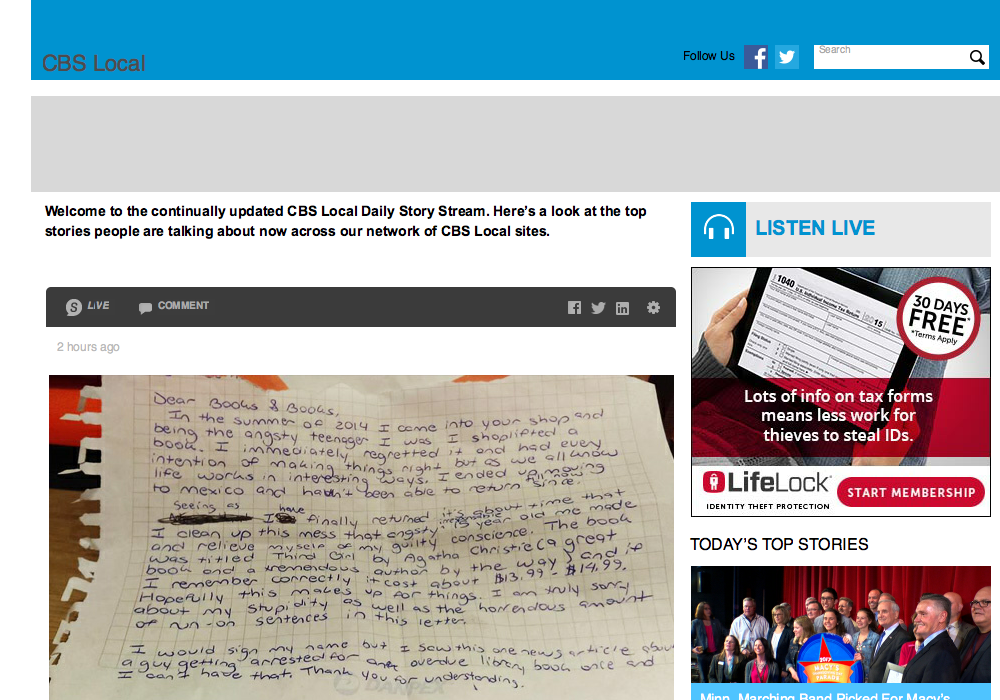 CBS Local
Follow Us
Search
Welcome to the continually updated CBS Local Daily Story Stream. Here's a look at the top
stories people are talking about now across our network of CBS Local sites.
LISTEN LIVE
LiVE
COMMENT
2 hours ago
Dear Books & Books,
In the summer of 2014 I came into your shop and
being the angsty teenager I was I shoplifted a
book. I immediately regretted it and had every
intention of making things right but as we all know
life works in interesting ways. I ended up moving
to mexico and hadn't been able to return since.
Seeing as I have finally returned it's about time that
I clean up this mess that angsty 15 year old me made
and relieve myself of my guilty conscience. The book
was titled Third Girl by Agatha Christie (a great
book and a tremendous author by the way) and if
I remember correctly it cost about $13.99 - $14.99.
Hopefully this makes up for things. I am truly sorry
about my stupidity as well as the horrendous amount
of run-on sentences in this letter.
I would sign my name but I saw this one news article about
a guy getting arrested for an overdue library book once and
I can't have that. Thank you for understanding.
DANPEX
1040
U.S. Individual Income Tax Return
2015
30 DAYS
FREE*
*Terms Apply
Lots of info on tax forms
means less work for
thieves to steal IDs.
LifeLock
IDENTITY THEFT PROTECTION
START MEMBERSHIP
TODAY'S TOP STORIES
2017
MACY'S
PARADE
Minn. Marching Band Picked For Macy's